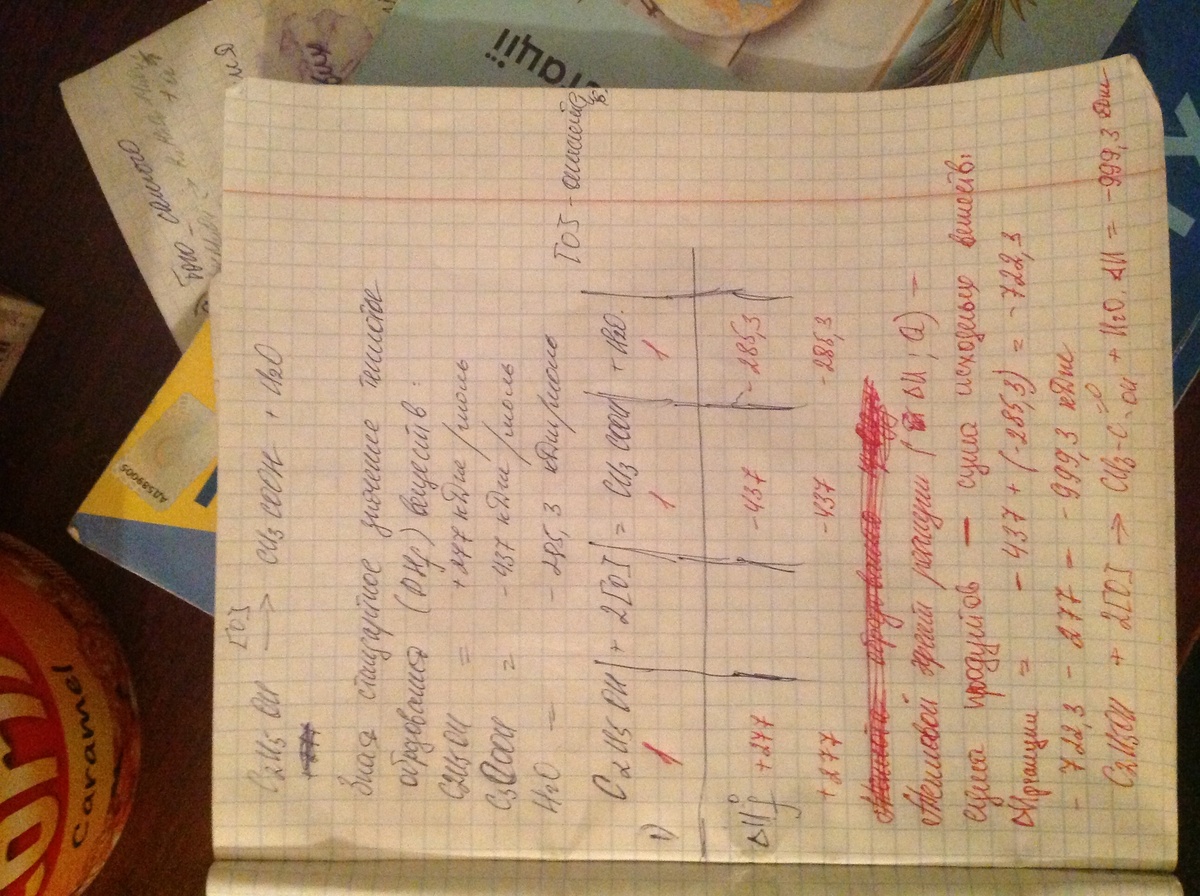 C₂H₅OH [O] → CH₃COOH + H₂O
Зная стандартное значение теплот
образования (ΔHf) веществ:
C₂H₅OH = +277 кДж/моль
C₃COOH = -437 кДж/моль
H₂O = -285,3 кДж/моль
[O] -
C₂H₅OH + 2[O] = CH₃COOH + H₂O.
ν 1 1 1
ΔH°f +277 -437 -285,3
+277 -437 -285,3
Тепловой эффект реакции (ΔH; Q) –
сумма продуктов – сумма исходных веществ:
ΔHреакции = -437 + (-285,3) = -722,3
-722,3 - 277 = -999,3 кДж
C₂H₅OH + 2[O] → CH₃-C=O-OH + H₂O, ΔH = -999,3 кДж
того самого
гації
Caramel
АД589005